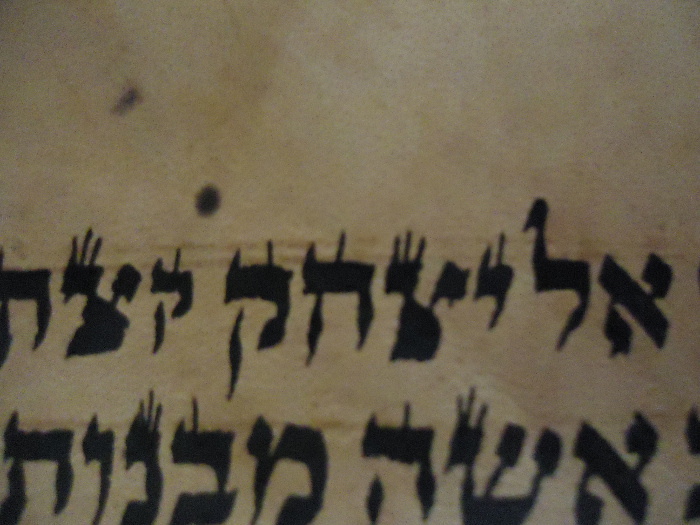 אל יצחק קצת
אשה מבנות